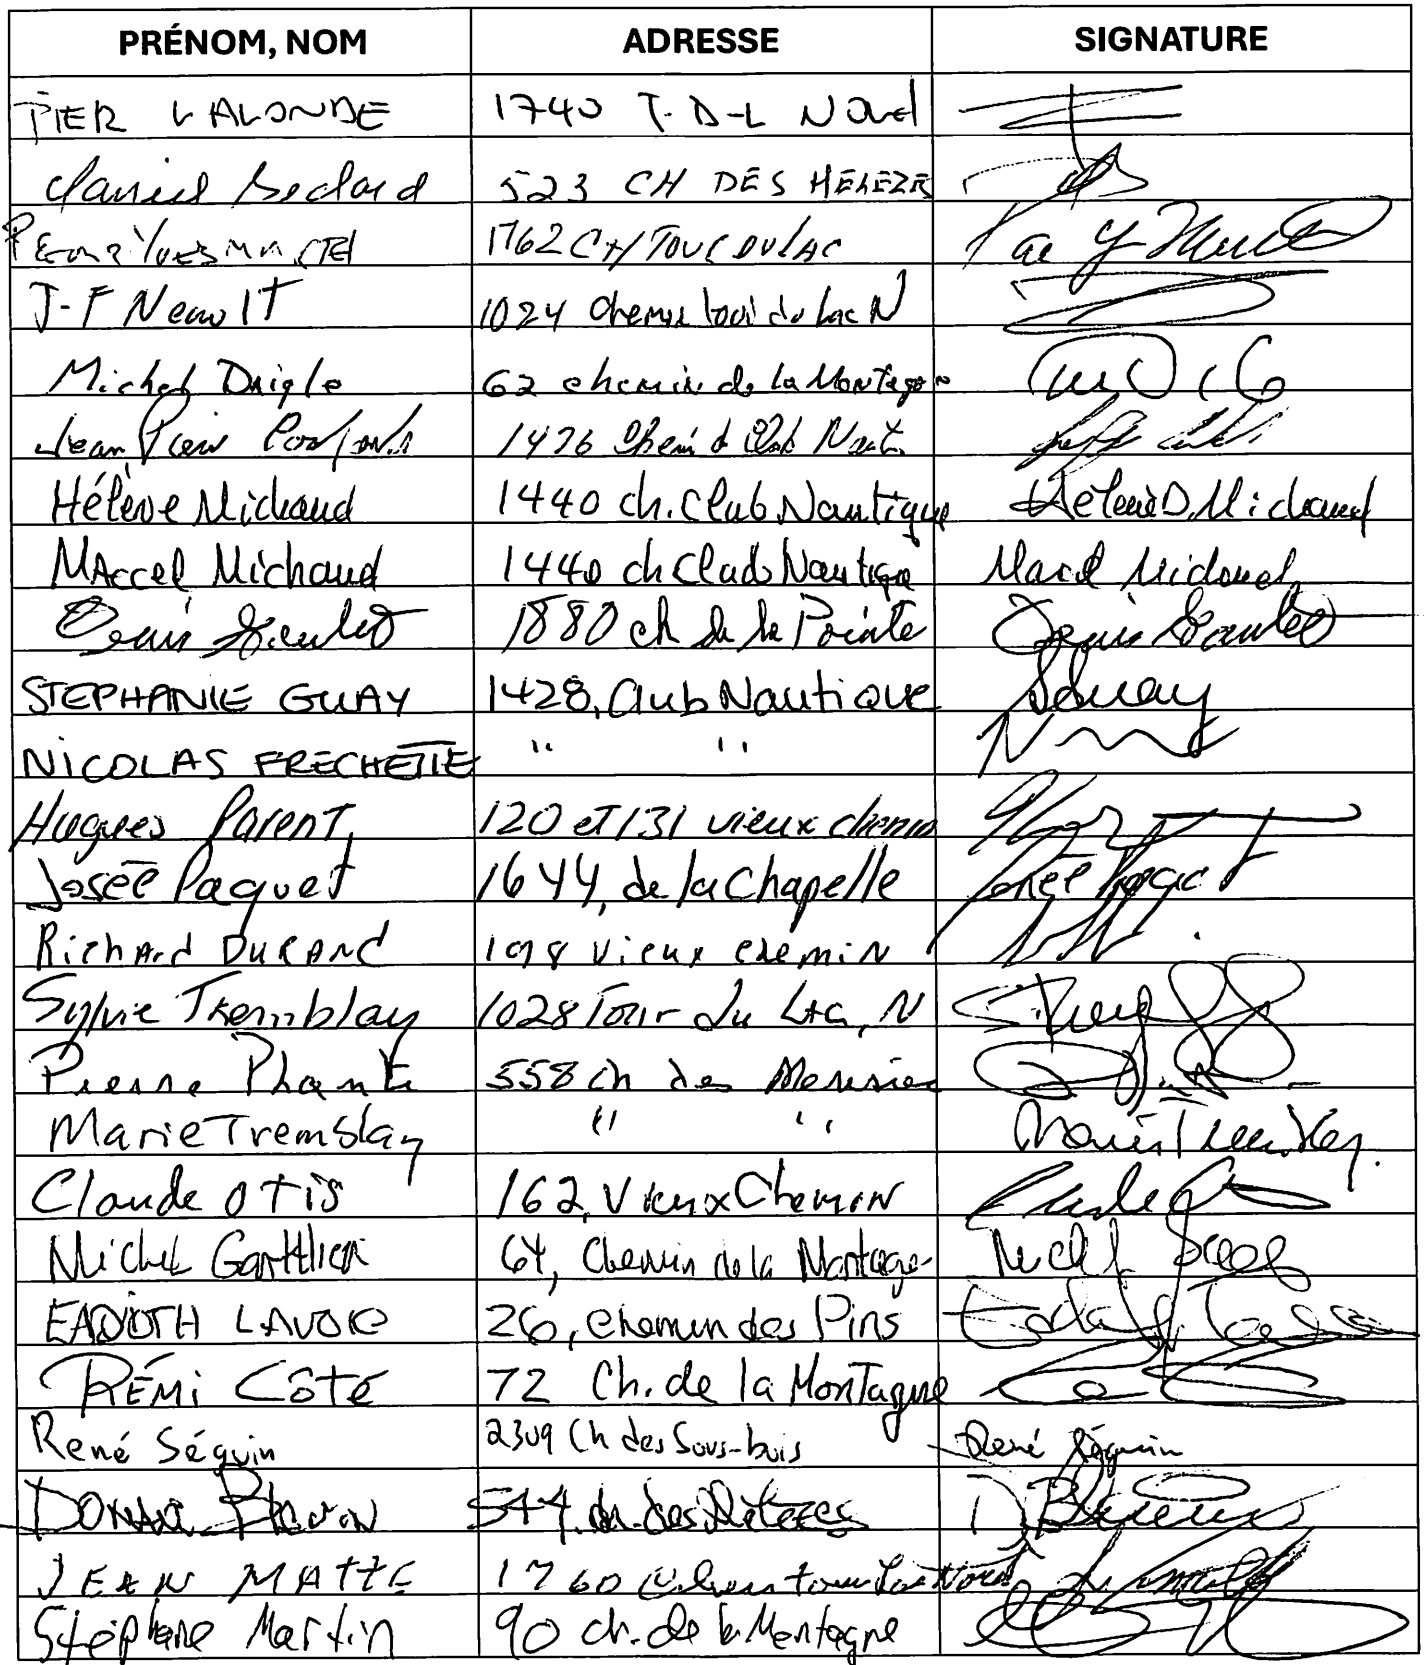 PRÉNOM, NOM ADRESSE SIGNATURE
PIER LALONDE 1740 T-D-L Nord
Bedard 523 CH DES
YVES 1762 CH TOUR DU LAC
J-F 1024 Chemin tour du Lac N
Michel Daigle 62 chemin de la Montagne
Jean Pierre 1426
Hélène Michaud 1440 ch. Club Nautique Hélène D. Michaud
Marcel Michaud 1440 ch Club Nautique Marcel Michaud
Denis 1880 ch de la Pointe Denis
STEPHANIE GUAY 1428, Club Nautique SGuay
NICOLAS FRECHETTE " "
Hugues Parent 120 et 131 vieux chemin
Josée Paquet 1644, de la Chapelle Josée Paquet
Richard DURAND 198 Vieux CHEMIN
Sylvie Tremblay 1028 Tour du Lac, N
Pierre Plante 558 ch des Merisiers
Marie Tremblay " " Marie Tremblay
Claude Otis 162, Vieux Chemin
Michel 64, Chemin de la Montagne
LAVOIE 26, chemin des Pins
RÉMI CÔTÉ 72 Ch. de la Montagne
René Séguin 2309 Ch des Sous-bois René Séguin
544, ch. des
JEAN MATTE 1760 tour Lac Nord
Stéphane Martin 90 ch. de la Montagne